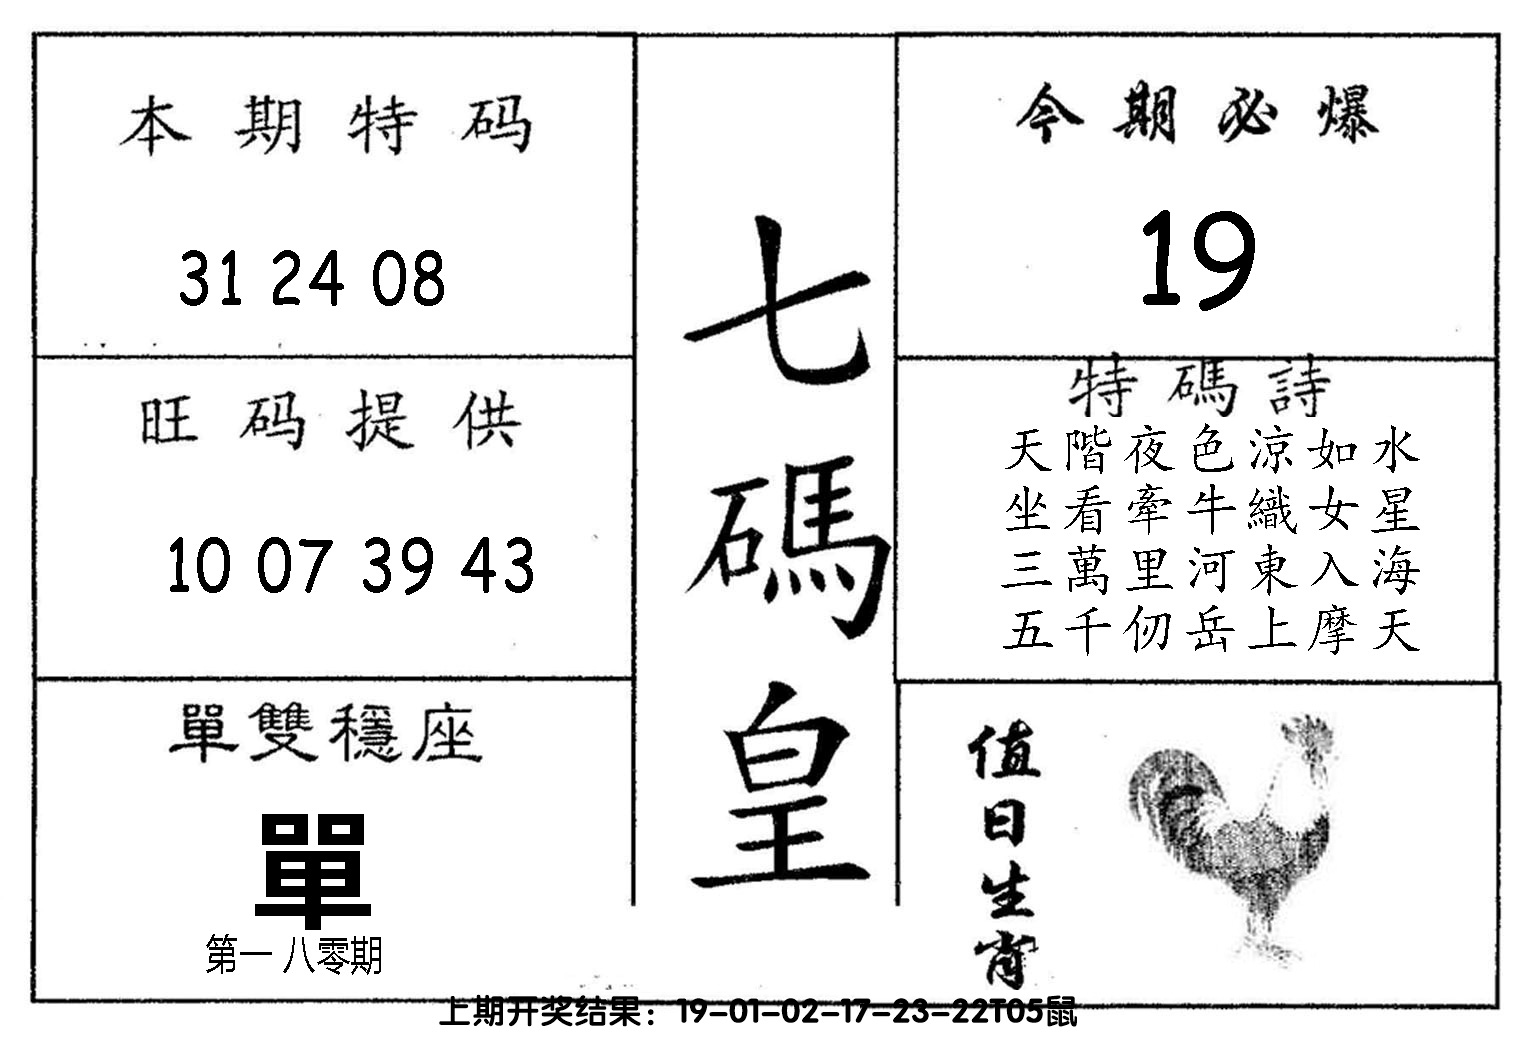 本期特码
31 24 08
旺码提供
10 07 39 43
單雙穩座
單
第一八零期
七碼皇
今期必爆
19
特碼詩
天階夜色涼如水
坐看牽牛織女星
三萬里河東入海
五千仞岳上摩天
值日生肖
上期开奖结果：19-01-02-17-23-22T05鼠